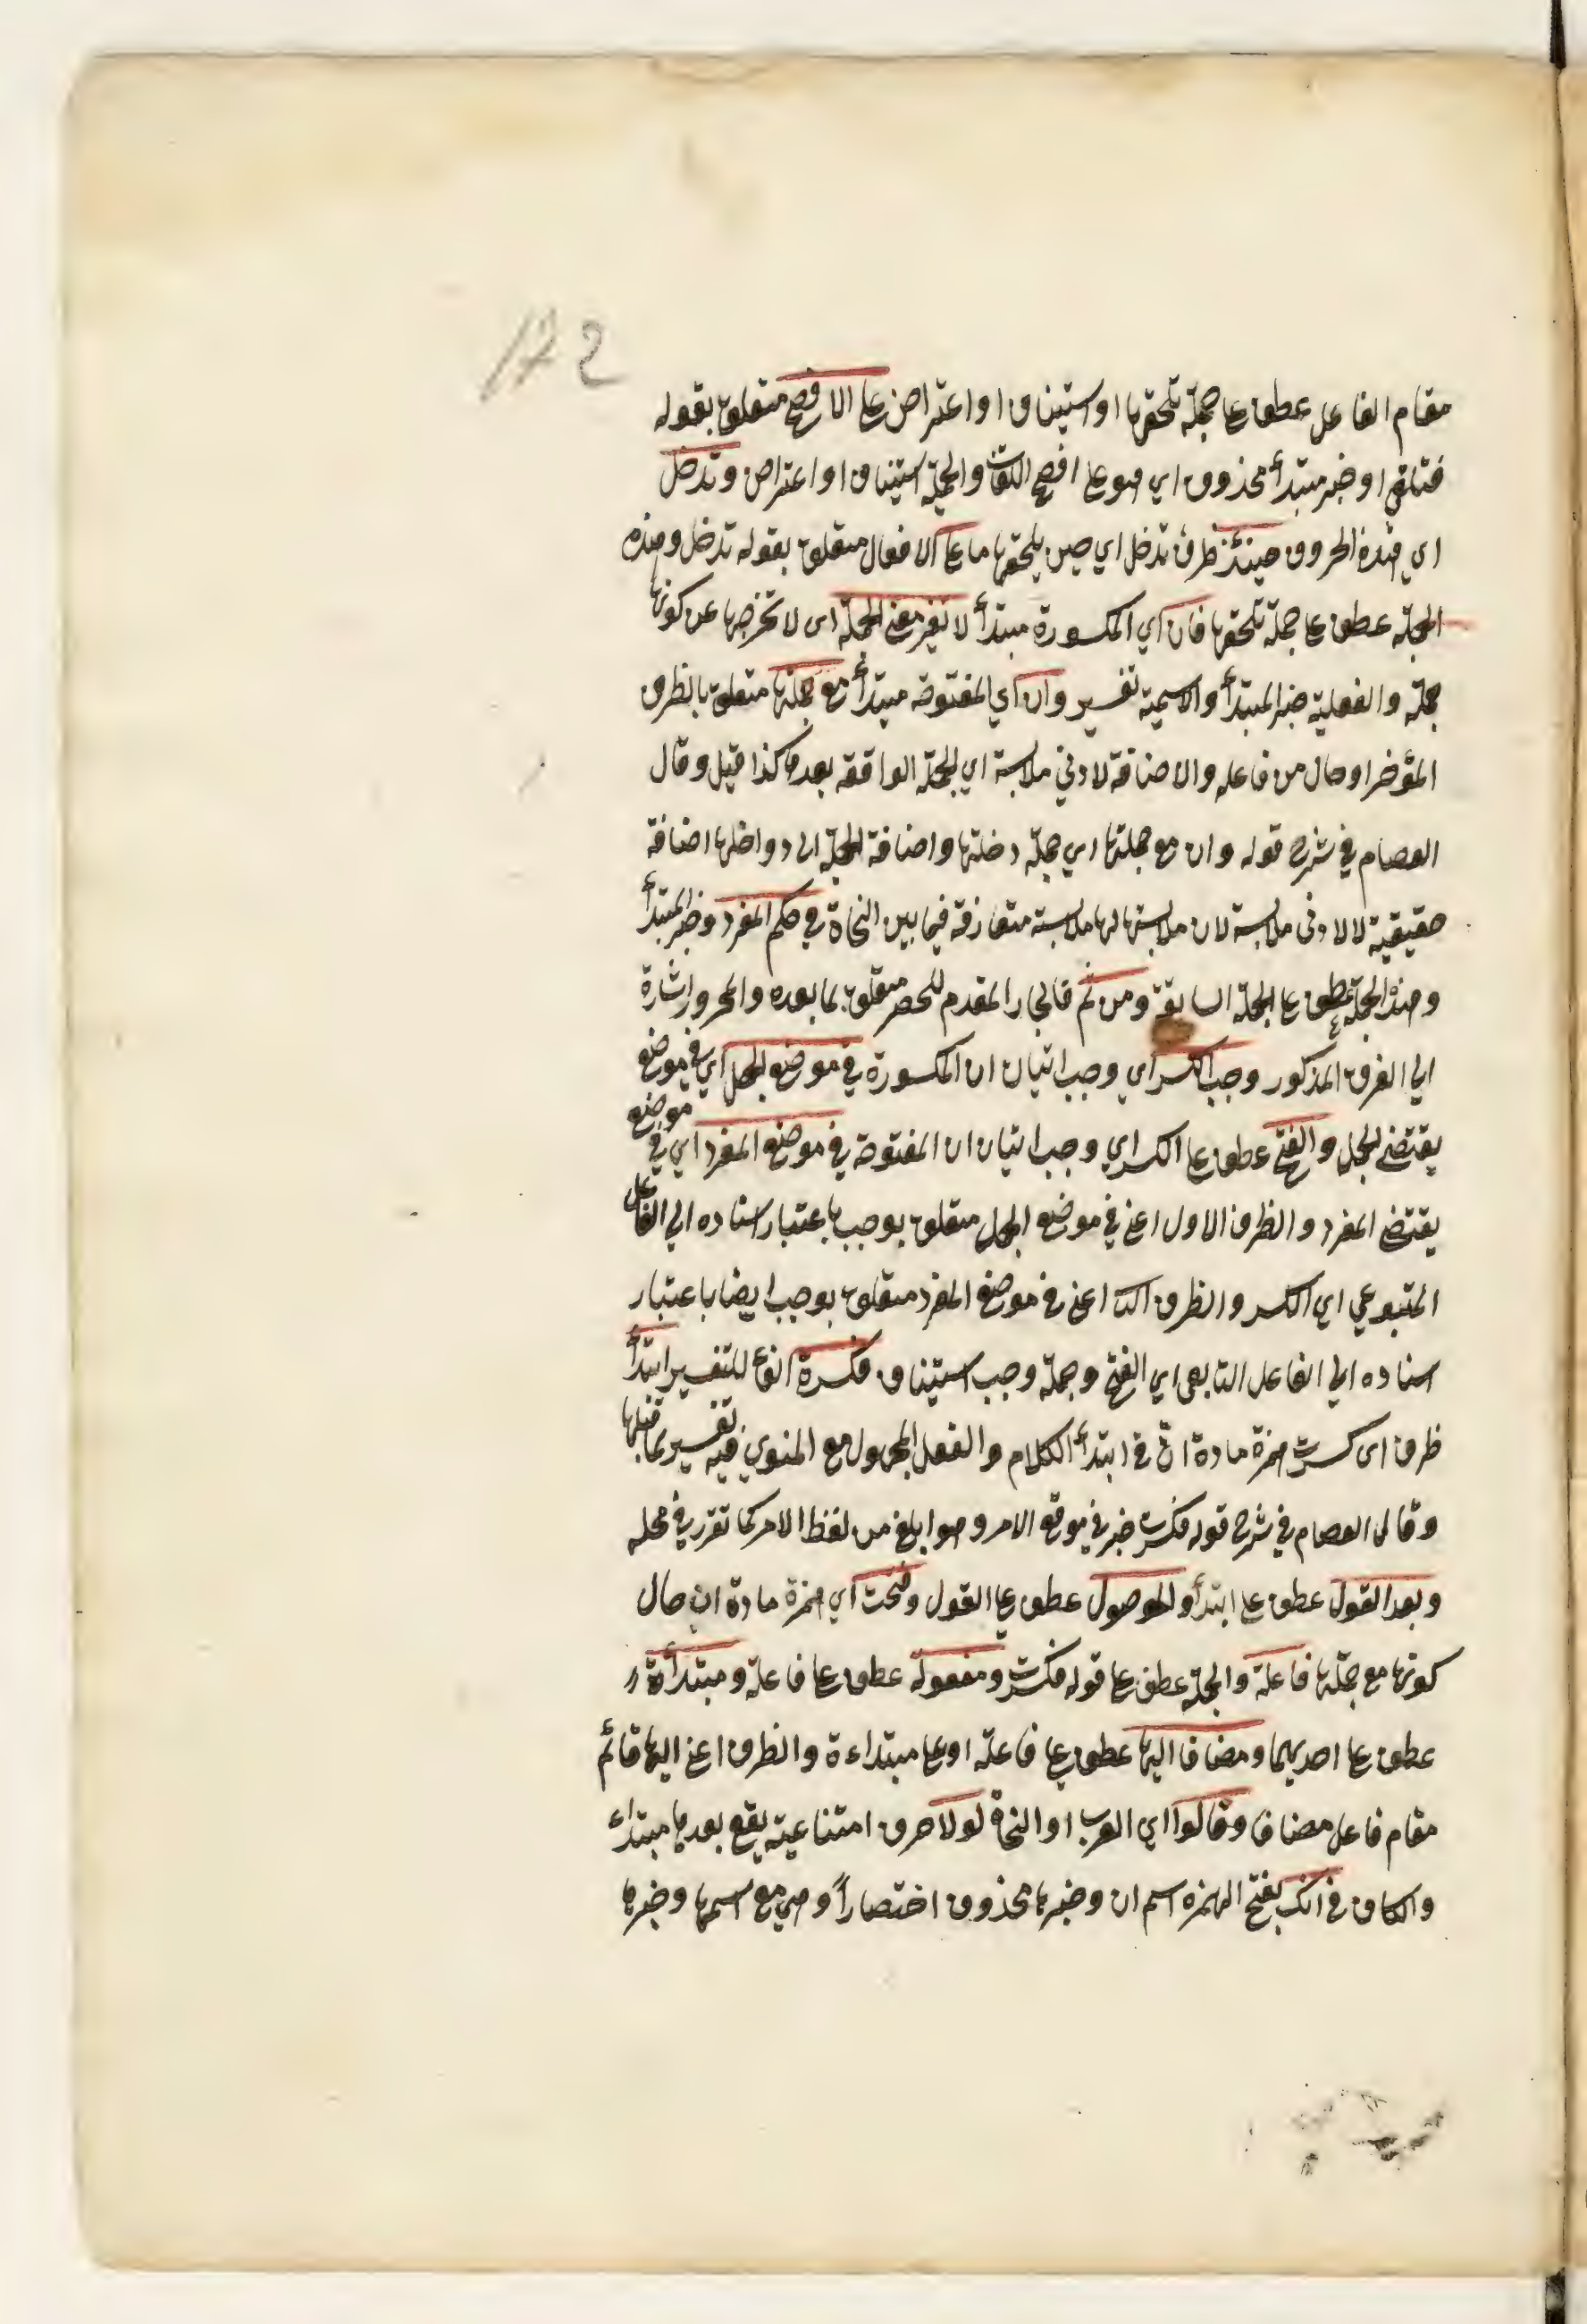 172
مقام الفاعل عطف على جملة تلحقها او استيناف او اعتراض على الافصح متعلق بقوله
فتلغى او خبر مبتدأ محذوف اي هو على افصح اللغات والجملة استيناف او اعتراض وتدخل
اي هذه الحروف حينئذ ظرف تدخل اي حين يلحقها ما على الافعال متعلق بقوله تدخل وهذه
الجملة عطف على جملة تلحقها فان اي المكسورة مبتدأ لا تغير معنى الجملة اى لا تخرجها عن كونها
جملة والفعلية خبر المبتدأ والاسمية تفسير وان اي المفتوحة مبتدأ مع جملتها متعلق بالظرف
المؤخر او حال من فاعله والاضافة لادنى ملابسة اي الجملة الواقعة بعدها كذا قيل وقال
العصام في شرح قوله وان مع جملتها اي جملة دخلتها واضافة الجملة الى دواخلها اضافة
حقيقية لا لادنى ملابسة لان ملابستها لها ملابسة متعارفة فيما بين النحاة في حكم المفرد وخبر المبتدأ
وهذه الجملة عطف على الجملة السابقة ومن ثم فالجار المقدم للحصر متعلق بما بعده والمجرور اشارة
الى الفرق المذكور وجب الكسر اي وجب اتيان ان المكسورة في موضع الجمل اي في موضع
يقتضي الجمل والفتح عطف على الكسر اي وجب اتيان ان المفتوحة في موضع المفرد اي في موضع
يقتضي المفرد والظرف الاول اعني في موضع الجمل متعلق بوجب باعتبار اسناده الى الفاعل
المتبوعي اي الكسر والظرف الثا اعني في موضع المفرد متعلق بوجب ايضا باعتبار
اسناده الى الفاعل التابعي اي الفتح وجملة وجب استيناف فكسرت الفاء للتفسير ابتدأ
ظرف اى كسرت همزة مادة ان في ابتدأ الكلام والفعل المجهول مع المنوي فيه تفسير لما قبلها
وقال العصام في شرح قوله فكسرت خبر في موقع الامر وهو ابلغ من لفظ الامر كما تقرر في محله
وبعد القول عطف على ابتدأ والموصول عطف على القول وفتحت اي همزة مادة ان حال
كونها مع جملتها فاعلة والجملة عطف على قوله فكسرت ومفعولة عطف على فاعلة ومبتدأة
عطف على احديهما ومضافا اليها عطف على فاعلة او على مبتداءة والظرف اعني اليها قائم
مقام فاعل مضافا وقالوا اي العرب او النحاة لولا حرف امتناعية يقع بعدها مبتداء
والكاف في انك بفتح الهمزه اسم ان وخبرها محذوف اختصاراً وهي مع اسمها وخبرها